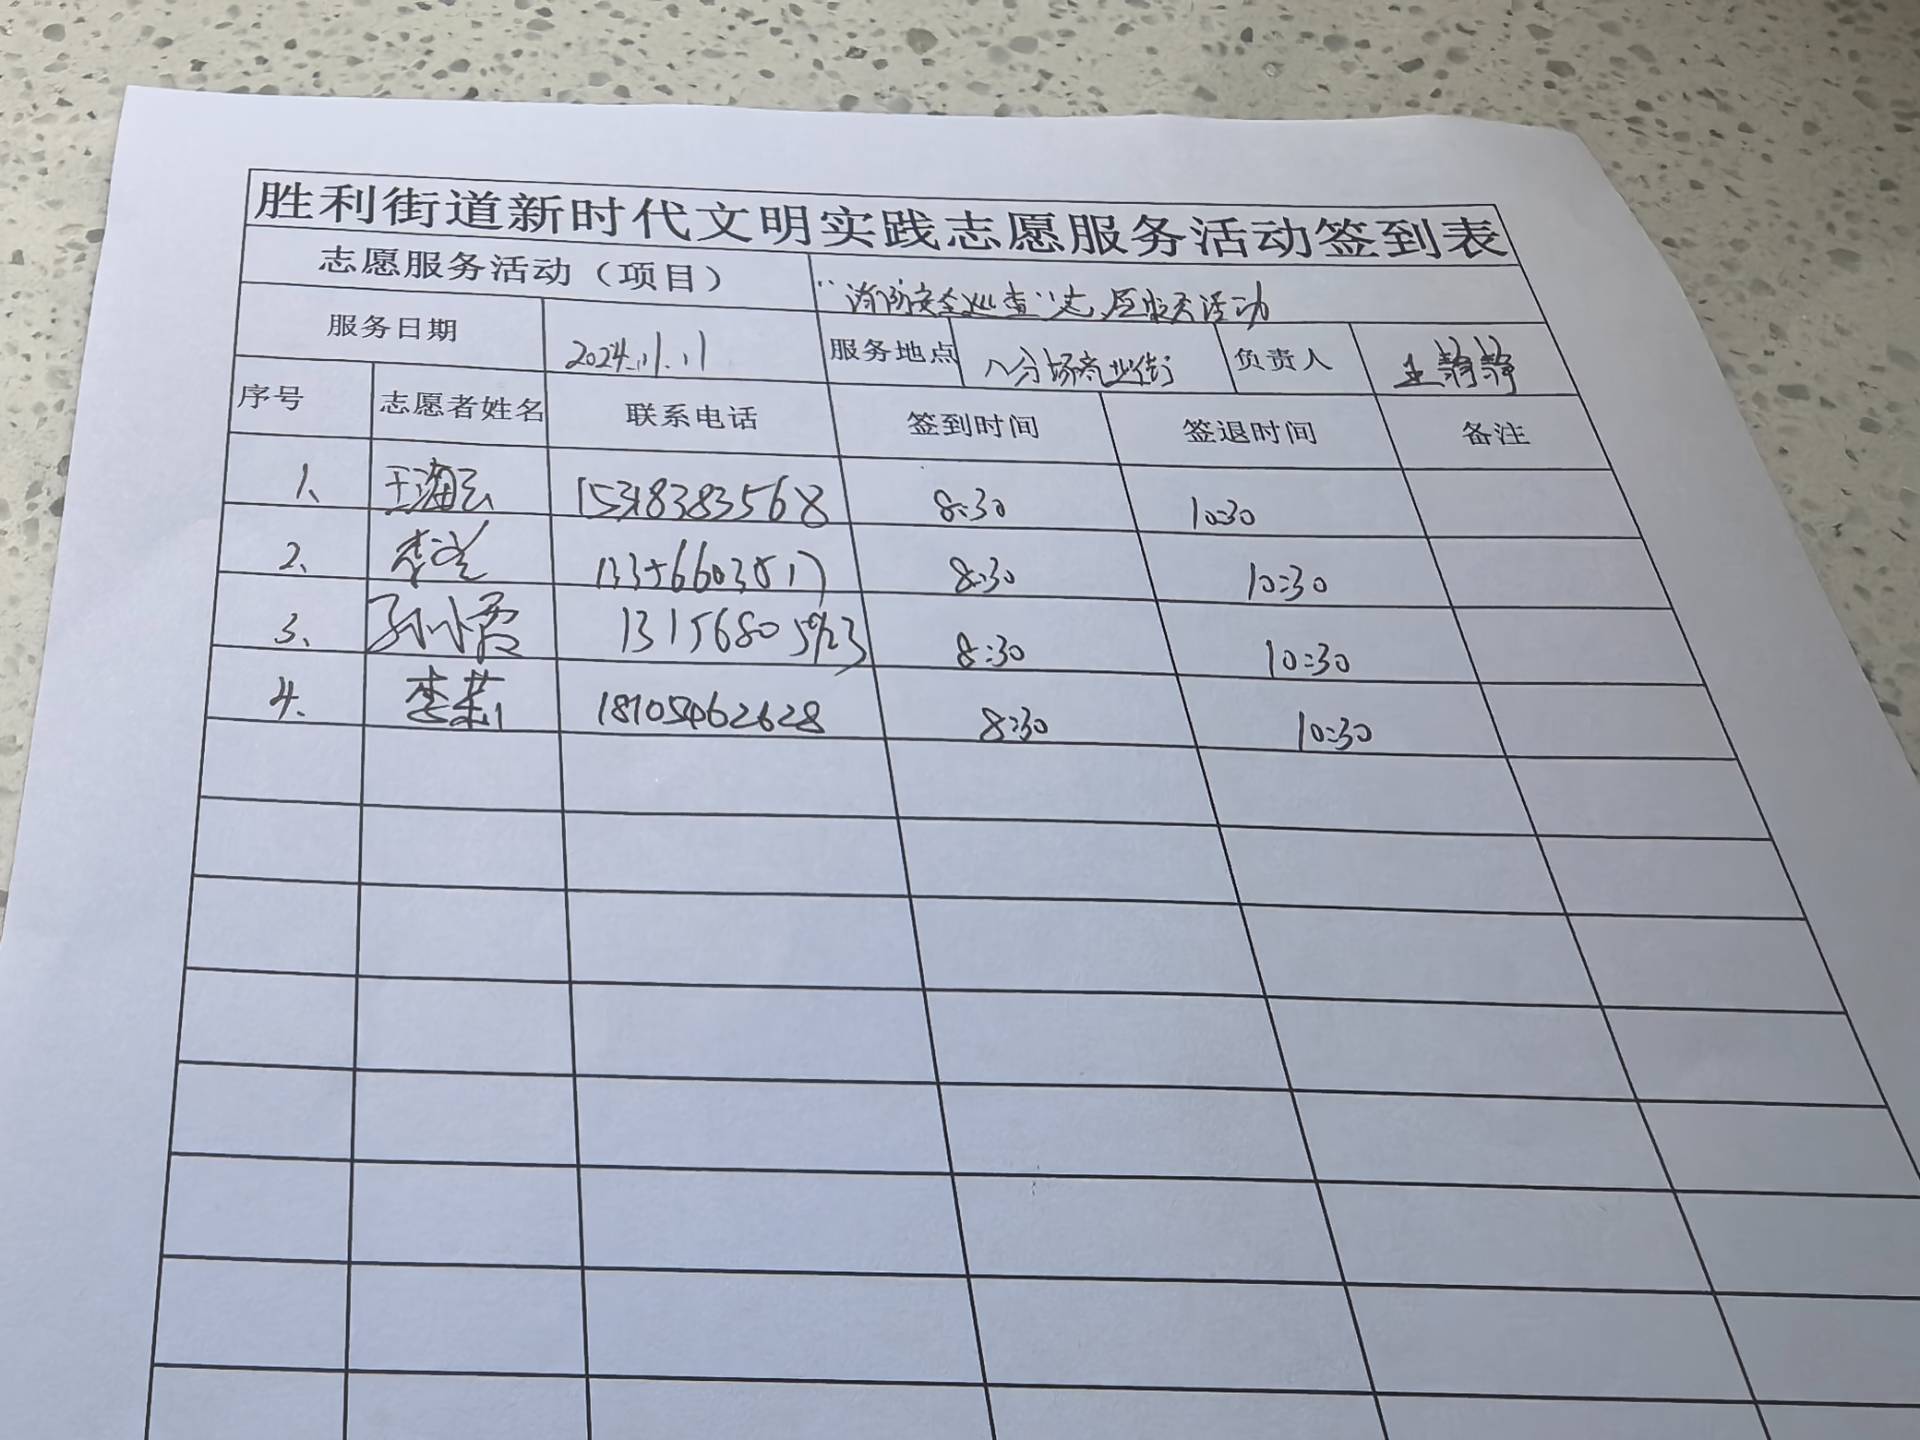 胜利街道新时代文明实践志愿服务活动签到表
志愿服务活动（项目） “消防安全巡查”志愿服务活动
服务日期 2024.11.11 服务地点 八分场商业街 负责人 王静静
序号 志愿者姓名 联系电话 签到时间 签退时间 备注
1、 王海云 8:30 10:30
2、 13356603517 8:30 10:30
3、 孙小霞 8:30 10:30
4、 李莉 8:30 10:30